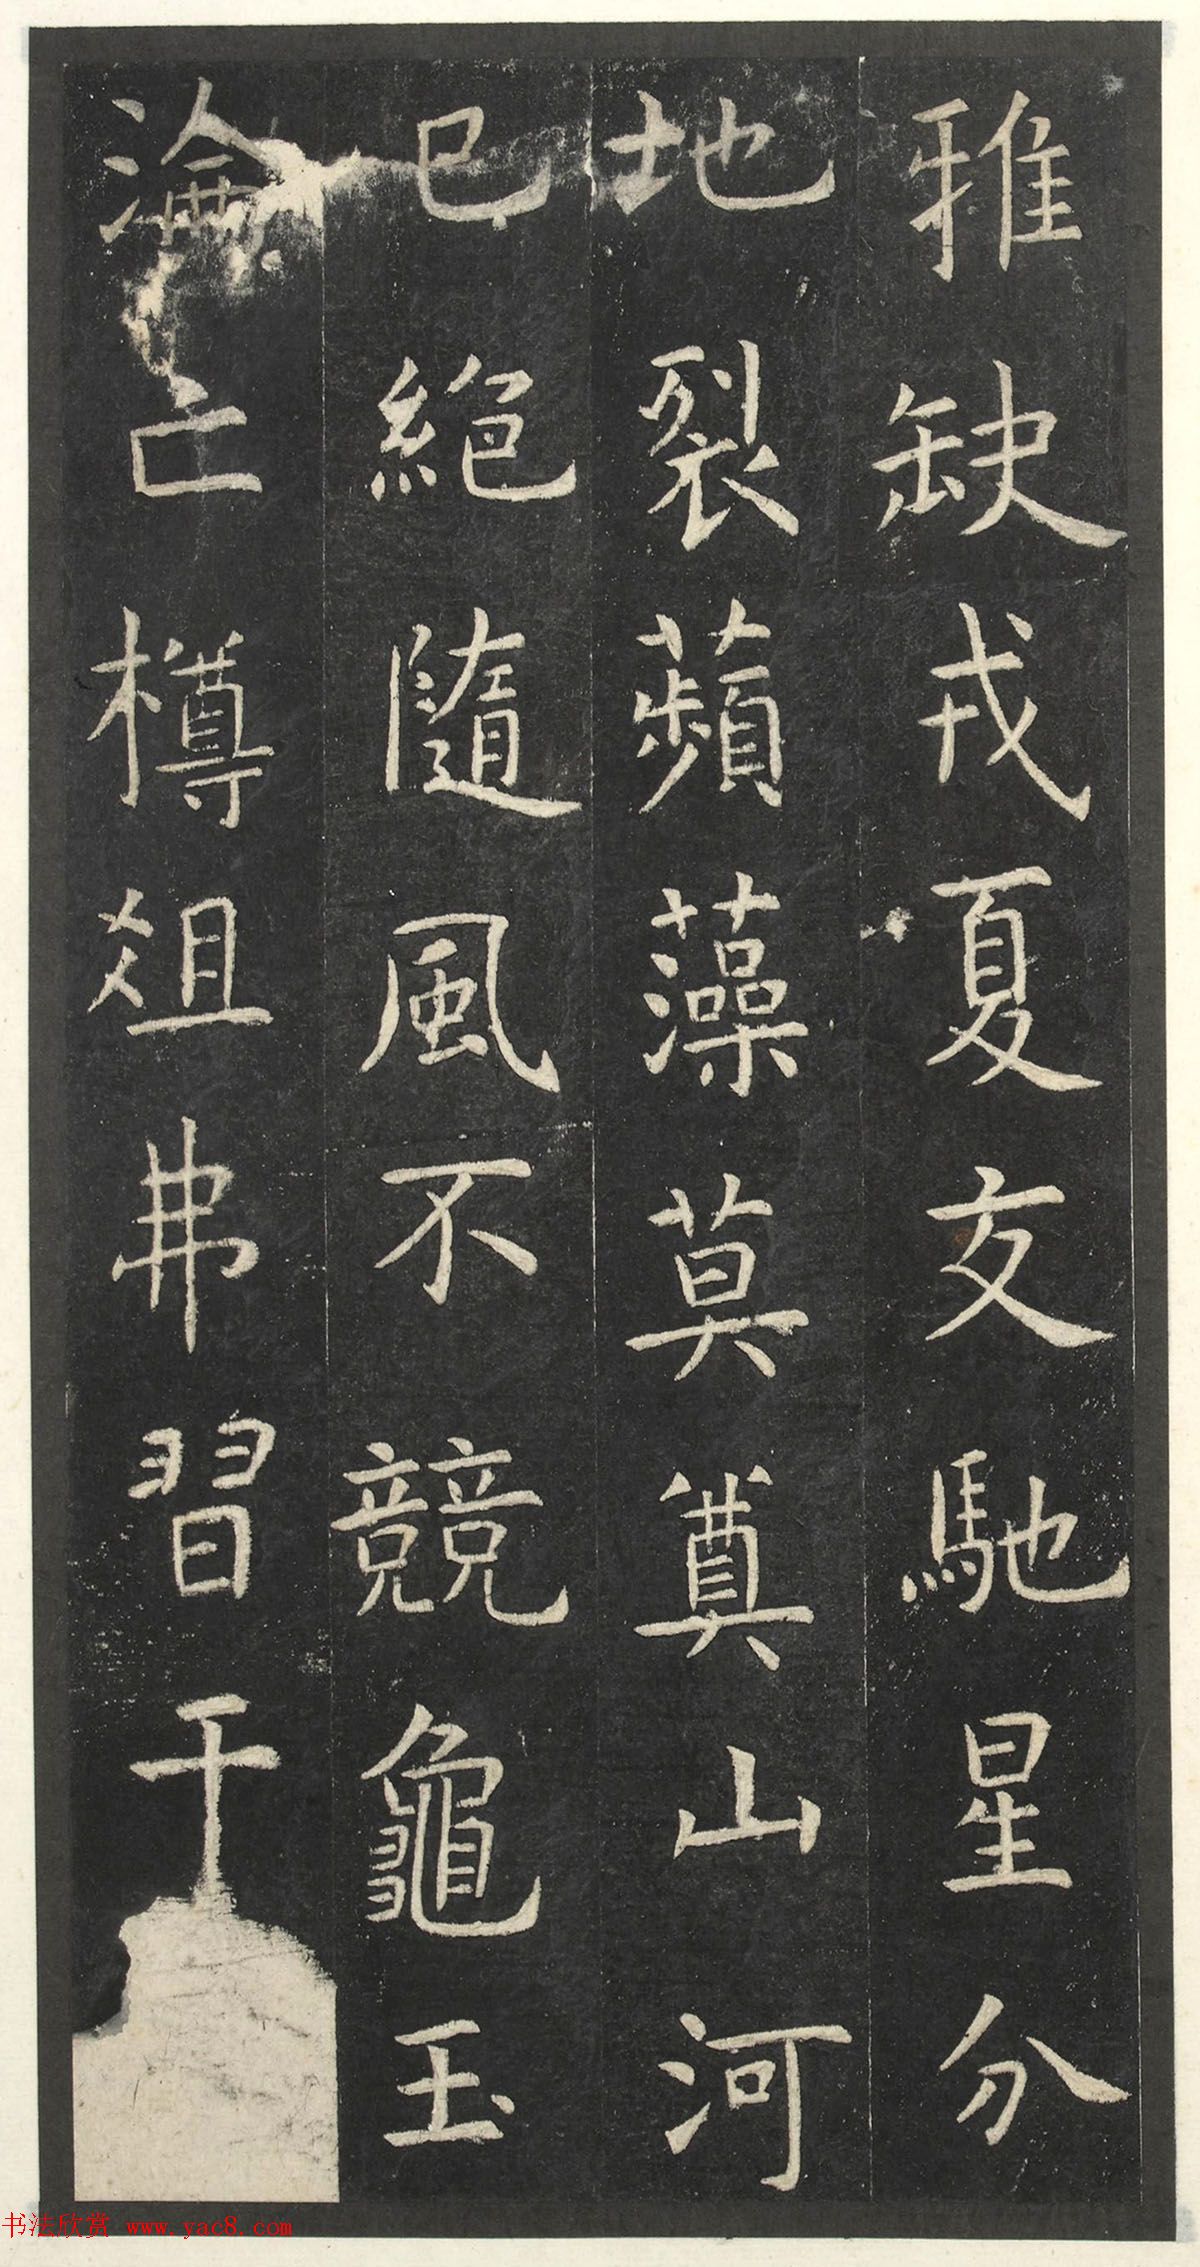 雅缺戎夏交馳星分
地裂蘋藻莫奠山河
已絕隨風不競龜玉
淪亡樽俎弗習干
书法欣赏 www.yac8.com